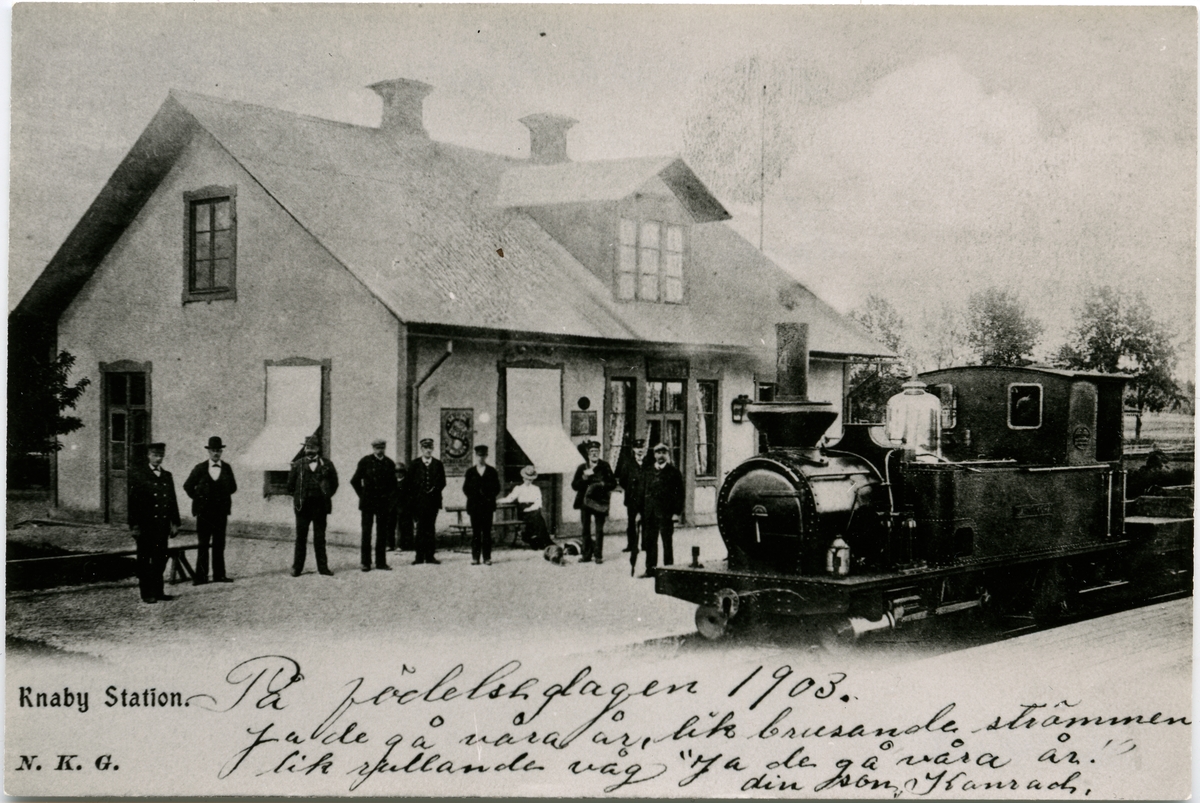 S
Knaby Station.
På födelsedagen 1903.
Ja de gå våra år, lik brusande strömmen
lik rullande våg "Ja de gå våra år!"
din son, Konrad.
N. K. G.